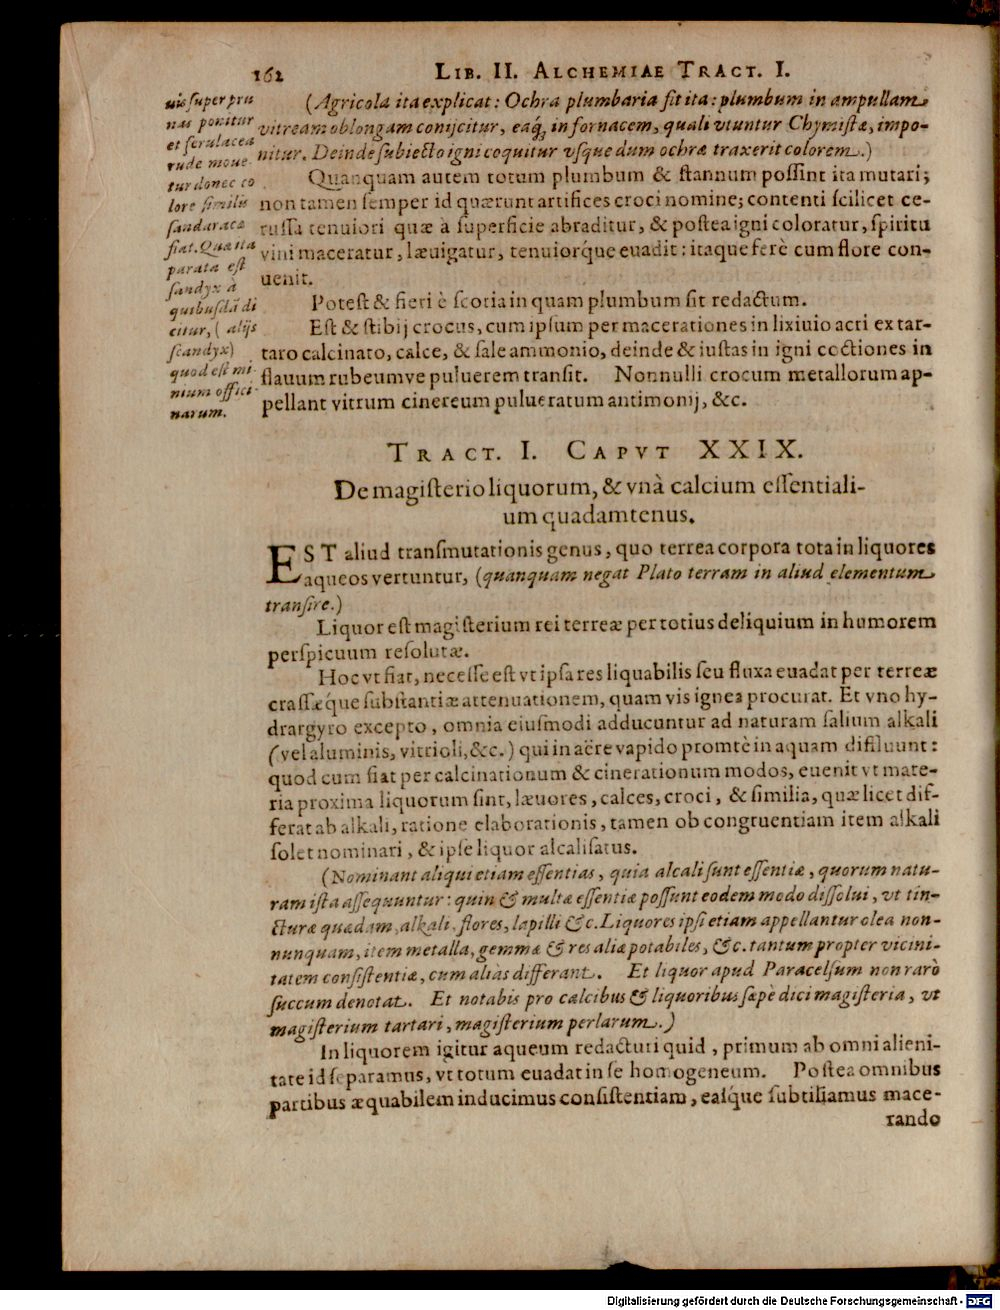 162
LIB. II. ALCHEMIAE TRACT. I.
uis super pru
nas ponitur
et ferulacea
rude moue-
tur donec co
lore similis
sandaracæ
fiat. Quæ ita
parata est
sandyx à
quibusdā di
citur, ( alijs
scandyx)
quod est mi-
nium offici-
narum.
(Agricola ita explicat: Ochra plumbaria fit ita: plumbum in ampullam
vitream oblongam conijcitur, eaq́; in fornacem, quali vtuntur Chymistæ, impo-
nitur. Deinde subiecto igni coquitur vsque dum ochræ traxerit colorem.)
Quanquam autem totum plumbum & stannum possint ita mutari;
non tamen semper id quærunt artifices croci nomine; contenti scilicet ce-
russa tenuiori quæ à superficie abraditur, & postea igni coloratur, spiritu
vini maceratur, læuigatur, tenuiorq́ue euadit: itaque ferè cum flore con-
uenit.
Potest & fieri è scoria in quam plumbum sit redactum.
Est & stibij crocus, cum ipsum per macerationes in lixiuio acri ex tar-
taro calcinato, calce, & sale ammonio, deinde & iustas in igni coctiones in
flauum rubeumve puluerem transit. Nonnulli crocum metallorum ap-
pellant vitrum cinereum pulueratum antimonij, &c.
TRACT. I. CAPVT XXIX.
De magisterio liquorum, & vnà calcium essentiali-
um quadamtenus.
EST aliud transmutationis genus, quo terrea corpora tota in liquores
aqueos vertuntur, (quanquam negat Plato terram in aliud elementum
transire.)
Liquor est magisterium rei terreæ per totius deliquium in humorem
perspicuum resolutæ.
Hoc vt fiat, necesse est vt ipsa res liquabilis seu fluxa euadat per terreæ
crassæq́ue substantiæ attenuationem, quam vis ignea procurat. Et vno hy-
drargyro excepto, omnia eiusmodi adducuntur ad naturam salium alkali
(vel aluminis, vitrioli, &c.) qui in aëre vapido promtè in aquam difiluunt:
quod cum fiat per calcinationum & cinerationum modos, euenit vt mate-
ria proxima liquorum sint, læuores, calces, croci, & similia, quæ licet dif-
ferat ab alkali, ratione elaborationis, tamen ob congruentiam item alkali
solet nominari, & ipse liquor alcalisatus.
(Nominant aliqui etiam essentias, quia alcali sunt essentiæ, quorum natu-
ram ista assequuntur: quin & multæ essentiæ possunt eodem modo dissolui, vt tin-
cturæ quædam, alkali, flores, lapilli &c. Liquores ipsi etiam appellantur olea non-
nunquam, item metalla, gemmæ & res aliæ potabiles, &c. tantum propter vicini-
tatem consistentiæ, cum aliàs differant. Et liquor apud Paracelsum non rarò
succum denotat. Et notabis pro calcibus & liquoribus sæpè dici magisteria, vt
magisterium tartari, magisterium perlarum.)
In liquorem igitur aqueum redacturi quid, primum ab omni alieni-
tate id separamus, vt totum euadat in se homogeneum. Postea omnibus
partibus æquabilem inducimus consistentiam, easq́ue subtiliamus mace-
rando
Digitalisierung gefördert durch die Deutsche Forschungsgemeinschaft - DFG